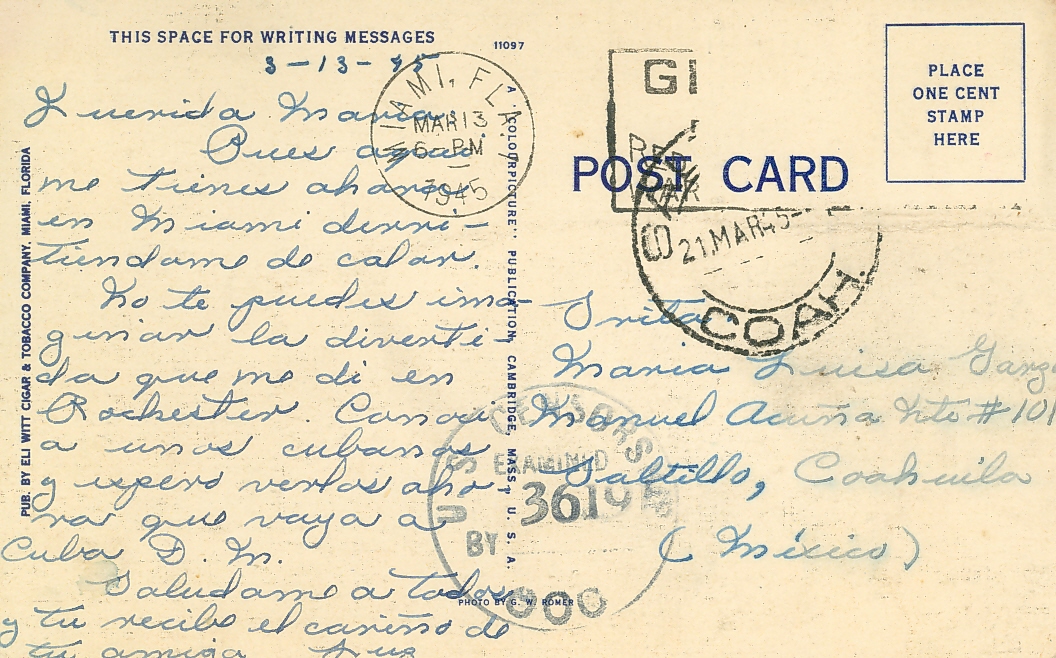 THIS SPACE FOR WRITING MESSAGES
3-13-45
Querida Maria:
Pues aquí
me tienes ahora
en Miami derri-
tiendome de calor.
No te puedes ima-
ginar la diverti-
da que me di en
Rochester Conocí
a unos cubanos
y espero verlos aho-
ra que vaya a
Cuba D. M.
Saludame a todos
y tu recibe el cariño de
tu amiga Luz
PUB. BY ELI WITT CIGAR & TOBACCO COMPANY, MIAMI, FLORIDA
11097
A "COLOURPICTURE" PUBLICATION, CAMBRIDGE, MASS., U. S. A.
PHOTO BY G. W. ROMER
MIAMI, FLA.
MAR 13
6-PM
1945
POST CARD
PLACE
ONE CENT
STAMP
HERE
21.MAR45-
COAH.
Srita
Maria Luisa Garza
Manuel Acuña Nte #101
Saltillo, Coahuila
(México)
U S CENSORSHIP
EXAMINED
BY 3619